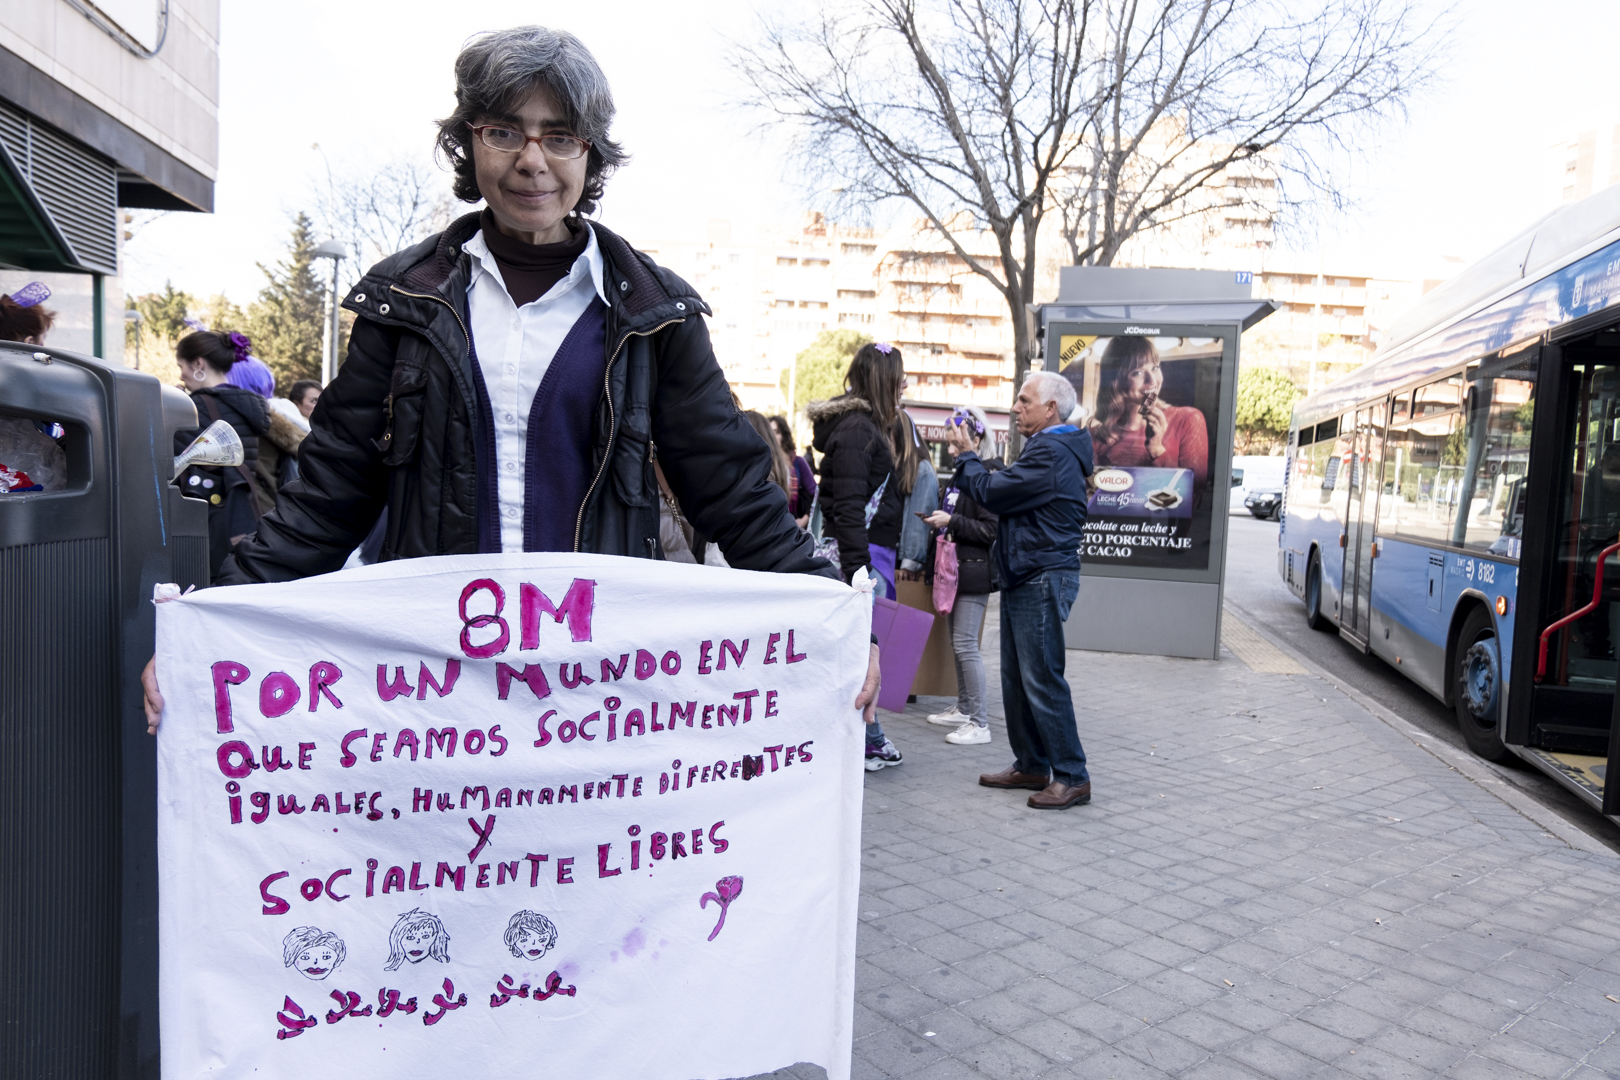 8M
POR UN MUNDO EN EL
QUE SEAMOS SOCIALMENTE
iGUALES, HUMANAMENTE DiFERENTES
Y
SOCiALMENTE LiBRES
171
JCDecaux
NUEVO
VALOR
LECHE 45%
ocolate con leche y
TO PORCENTAJE
E CACAO
EMT
8182